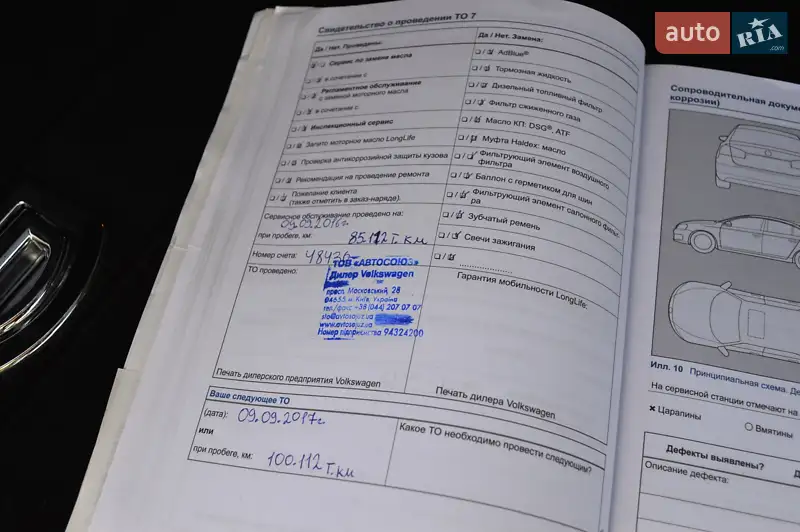 auto RIA .com
Свидетельство о проведении ТО 7
Да / Нет. Проведены:
Сервис по замене масла
в сочетании с
Регламентное обслуживание
с заменой моторного масла
в сочетании с
Инспекционный сервис
Залито моторное масло LongLife
Проверка антикоррозийной защиты кузова
Рекомендация на проведение ремонта
Пожелание клиента
(также отметить в заказ-наряде).
Сервисное обслуживание проведено на:
09.09.2016г.
при пробеге, км: 85.112 т.км
Номер счета:
ТО проведено:
ТОВ «АВТОСОЮЗ»
Дилер Volkswagen
просп. Московський, 28
04655 м. Київ, Україна
тел./факс +38 (044) 207 07 07
sto@avtosojuz.ua
www.avtosojuz.ua
Номер підприємства 94324200
Печать дилерского предприятия Volkswagen
Да / Нет. Замена:
AdBlue®
Тормозная жидкость
Дизельный топливный фильтр
Фильтр сжиженного газа
Масло КП: DSG®, ATF
Муфта Haldex: масло
Фильтрующий элемент воздушного
фильтра
Баллон с герметиком для шин
Фильтрующий элемент салонного фильт-
ра
Зубчатый ремень
Свечи зажигания
Гарантия мобильности LongLife:
Печать дилера Volkswagen
Ваше следующее ТО
(дата): 09.09.2017г.
или
при пробеге, км: 100.112 т.км
Какое ТО необходимо провести следующим?
Сопроводительная докуме
коррозии)
Илл. 10 Принципиальная схема. Де
На сервисной станции отмечают на
× Царапины
○ Вмятины
Дефекты выявлены?
Описание дефекта: